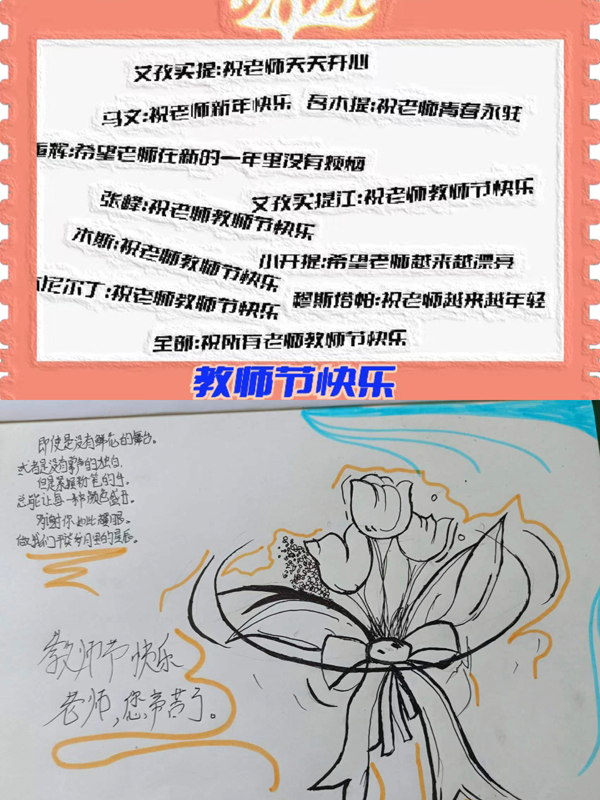 艾孜买提:祝老师天天开心
马文:祝老师新年快乐 吾木提:祝老师青春永驻
辉:希望老师在新的一年里没有烦恼
张峰:祝老师教师节快乐 艾孜买提江:祝老师教师节快乐
木斯:祝老师教师节快乐 小开提:希望老师越来越漂亮
尼尔丁:祝老师教师节快乐 穆斯塔帕:祝老师越来越年轻
全部:祝所有老师教师节快乐
教师节快乐
即使是没有鲜花的舞台。
或者是没有掌声的独白,
但是紧握粉笔的手。
总能让每一种颜色盛开。
感谢你如此耀眼。
做我们平淡岁月里的星辰。
教师节快乐
老师,您辛苦了。